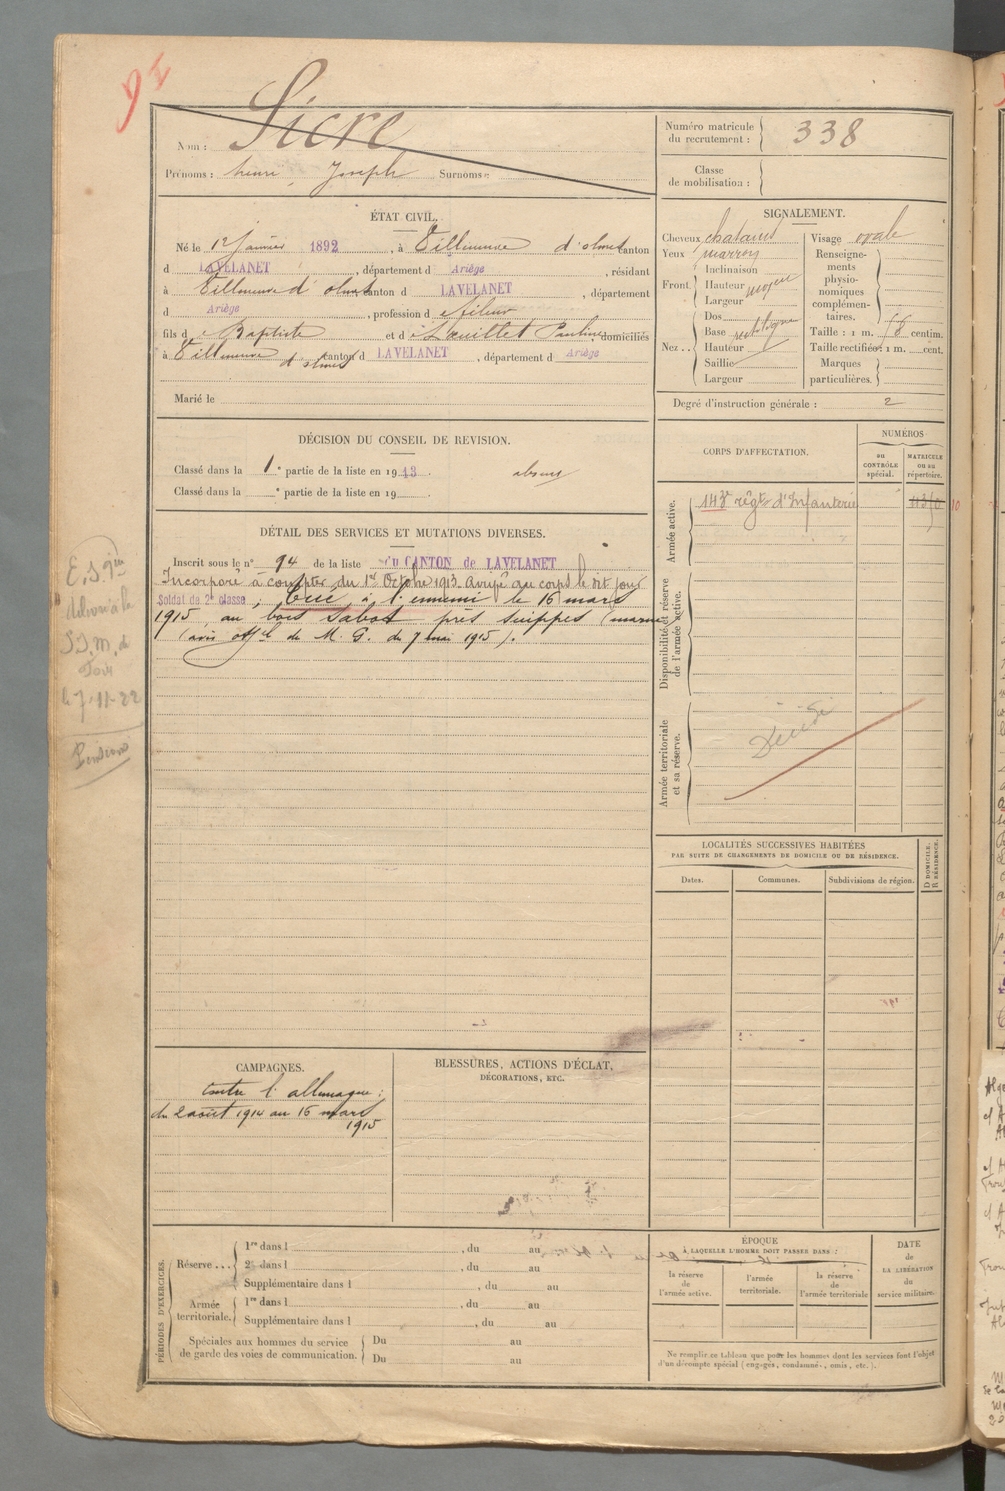 94
Nom : Sicre
Prénoms : henri Joseph Surnoms :
Numéro matricule du recrutement : 338
Classe de mobilisation :
ÉTAT CIVIL.
Né le 12 Janvier 1892, à Villeneuve d'olmes canton
d LAVELANET, département d Ariège, résidant
à Villeneuve d'olmes canton d LAVELANET, département
d Ariège, profession d fileur
fils de Baptiste et de Pauline, domiciliés
à Villeneuve d'olmes canton d LAVELANET, département d Ariège
Marié le
SIGNALEMENT.
Cheveux chatains
Yeux marron
Front. Inclinaison
Hauteur moyen
Largeur
Nez .. Dos
Base
Hauteur
Saillie
Largeur
Visage ovale
Renseignements physionomiques complémentaires.
Taille : 1 m. 58 centim.
Taille rectifiée : 1 m. cent.
Marques particulières.
Degré d'instruction générale : 2
DÉCISION DU CONSEIL DE REVISION.
Classé dans la 1e partie de la liste en 1913. absent
Classé dans la e partie de la liste en 19
CORPS D'AFFECTATION.
NUMÉROS
au CONTRÔLE spécial.
MATRICULE ou au répertoire.
Armée active.
143e régt d'Infanterie
10
Disponibilité et réserve de l'armée active.
Armée territoriale et sa réserve.
Décédé
DÉTAIL DES SERVICES ET MUTATIONS DIVERSES.
Inscrit sous le n° 94 de la liste du CANTON de LAVELANET
Incorporé à compter du 1er Octobre 1913. Arrivé au corps le dit jour
Soldat de 2e classe ; Tué à l'ennemi le 16 mars
1915, au bois Sabot près suippes (marne)
(avis offel de M. G. du 7 mai 1915).
E.S. 9m
délivré à le
S.I.M. de
le 7-11-22
Pension
LOCALITÉS SUCCESSIVES HABITÉES
PAR SUITE DE CHANGEMENTS DE DOMICILE OU DE RÉSIDENCE.
Dates.
Communes.
Subdivisions de région.
D DOMICILE.
R RÉSIDENCE.
CAMPAGNES.
Contre l'allemagne :
du 2 août 1914 au 16 mars
1915
BLESSURES, ACTIONS D'ÉCLAT,
DÉCORATIONS, ETC.
PÉRIODES D'EXERCICES.
Réserve ... 1re dans l , du au
2e dans l , du au
Supplémentaire dans l , du au
Armée territoriale. 1re dans l , du au
Supplémentaire dans l , du au
Spéciales aux hommes du service de garde des voies de communication. Du au
Du au
ÉPOQUE
À LAQUELLE L'HOMME DOIT PASSER DANS :
la réserve de l'armée active.
l'armée territoriale.
la réserve de l'armée territoriale
DATE de LA LIBÉRATION du service militaire.
Ne remplir ce tableau que pour les hommes dont les services font l'objet
d'un décompte spécial (engagés, condamnés, omis, etc.).